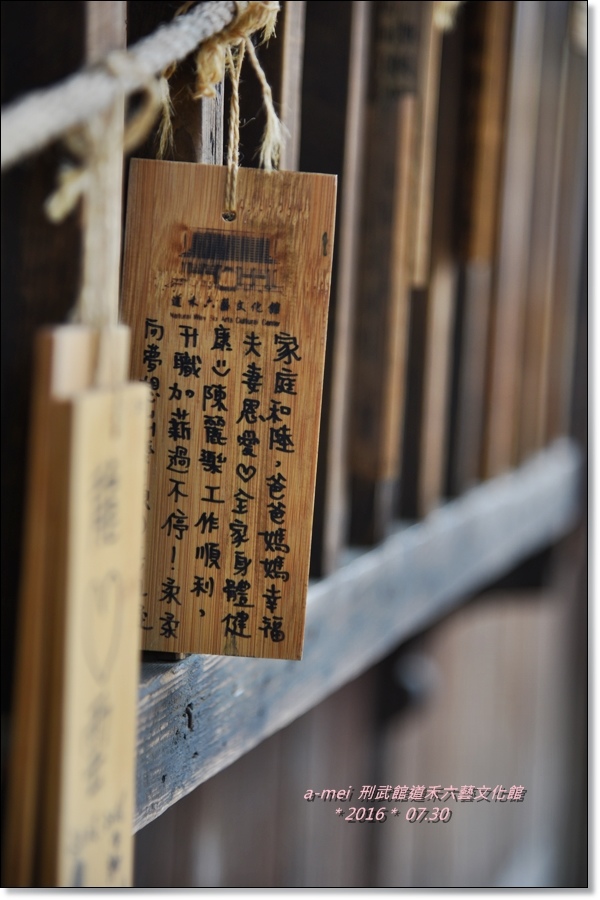 道禾六藝文化館
Natural Way Six Arts Cultural Center
家庭和陸，爸爸媽媽幸福
夫妻恩愛♡全家身體健
康 陳麗樂工作順利，
升職加薪過不停！柔柔
向夢想
a-mei 刑武館道禾六藝文化館
* 2016 * 07.30